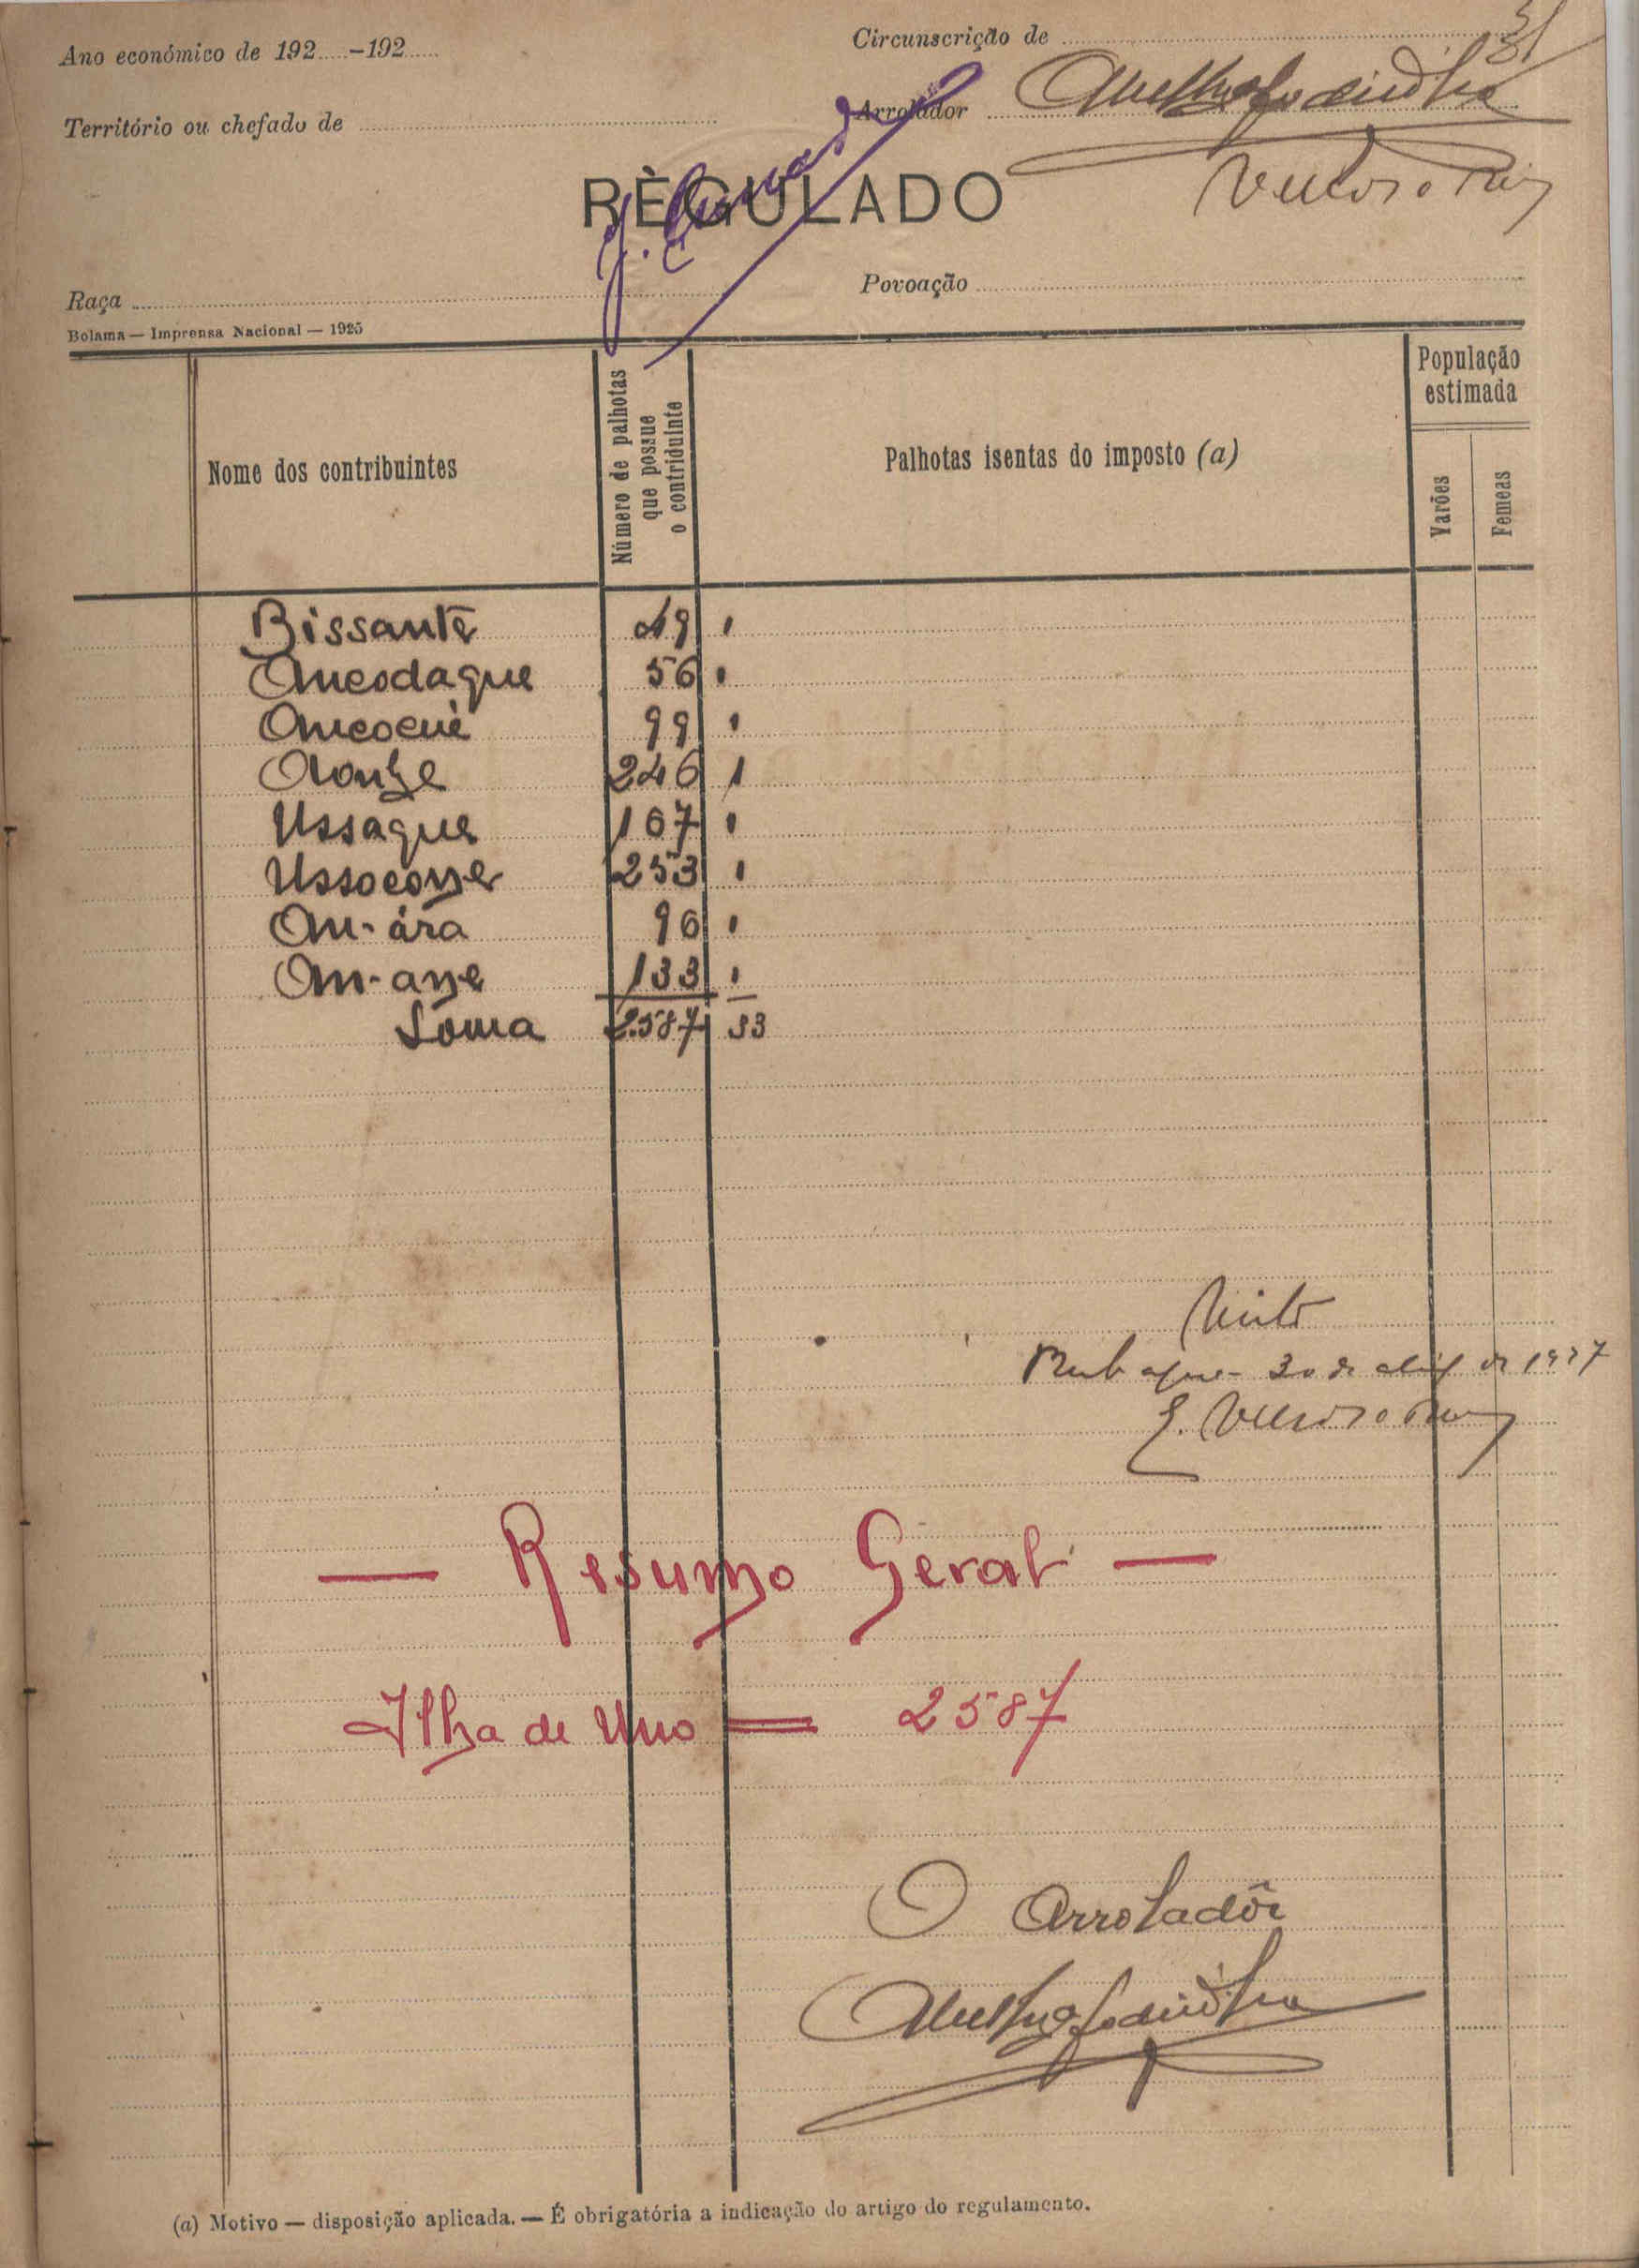 31
Ano económico de 192.....-192.....
Circunscrição de
Território ou chefado de
Arrolador
RÈGULADO
Raça
Povoação
Bolama — Imprensa Nacional — 1925
Nome dos contribuintes
Número de palhotas
que possue
o contriduinte
Palhotas isentas do imposto (a)
População
estimada
Varões
Femeas
Bissantê 49
Ancodaque 56
99
246 1
Ussaque 167
253
An-ára 96
An-ane 133
Sôma 2.587 33
Visto
Bubaque 30 de abril de 1927
— Resumo Geral —
Ilha de Uno = 2587
O Arroladôr
(a) Motivo — disposição aplicada. — É obrigatória a indicação do artigo do regulamento.